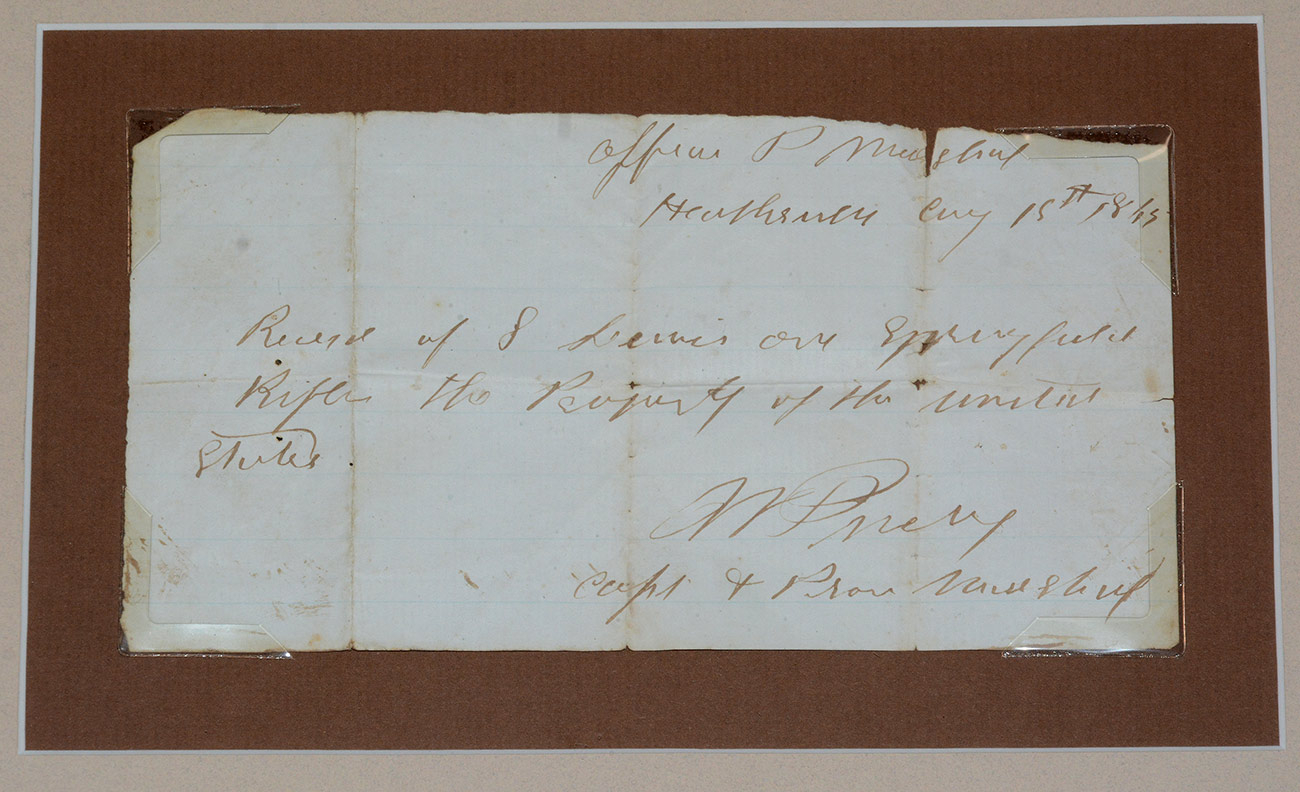 Office P Marshal
Heathsville Aug 15th 1865
Recd of S one Springfield
Rifle the Property of the United
States
Capt & Prov Marshal